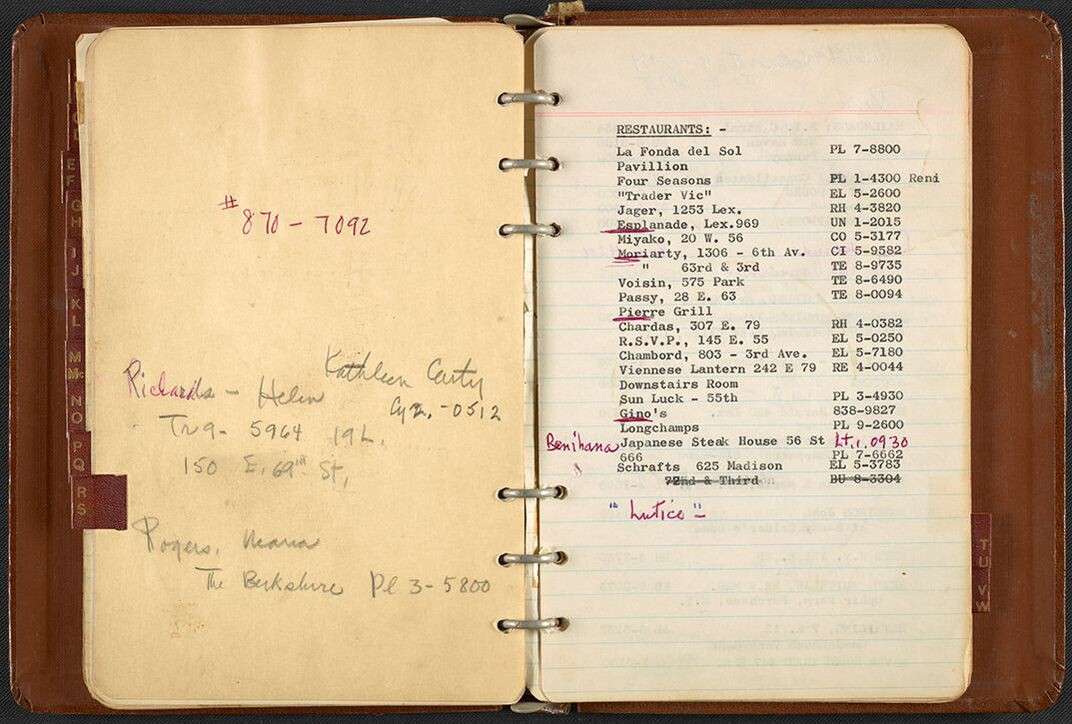 # 870 - 7092
Kathleen Carty
Richards - Helen
Cy 2, -0512
Tr 9- 5964 19L.
150 E. 69th St,
Rogers, Maria
The Berkshire Pl 3-5800
E
F
G
H
I
J
K
L
M
Mc
N
O
P
Q
R
S
RESTAURANTS: -
La Fonda del Sol PL 7-8800
Pavillion
Four Seasons PL 1-4300 Reni
"Trader Vic" EL 5-2600
Jager, 1253 Lex. RH 4-3820
Esplanade, Lex.969 UN 1-2015
Miyako, 20 W. 56 CO 5-3177
Moriarty, 1306 - 6th Av. CI 5-9582
" 63rd & 3rd TE 8-9735
Voisin, 575 Park TE 8-6490
Passy, 28 E. 63 TE 8-0094
Pierre Grill
Chardas, 307 E. 79 RH 4-0382
R.S.V.P., 145 E. 55 EL 5-0250
Chambord, 803 - 3rd Ave. EL 5-7180
Viennese Lantern 242 E 79 RE 4-0044
Downstairs Room
Sun Luck - 55th PL 3-4930
Gino's 838-9827
Longchamps PL 9-2600
Benihana Japanese Steak House 56 St Lt.1.0930
666 PL 7-6662
Schrafts 625 Madison EL 5-3783
72nd & Third BU 8-3304
"Lutice"
T
U
V
W